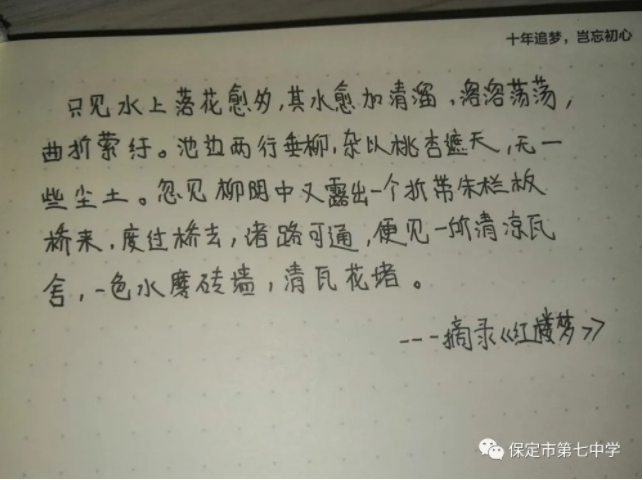 十年追梦，岂忘初心
只见水上落花愈多，其水愈加清溜，溶溶荡荡，
曲折萦纡。池边两行垂柳，杂以桃杏遮天，无一
些尘土。忽见柳阴中又露出一个折带朱栏板
桥来，度过桥去，诸路可通，便见一所清凉瓦
舍，一色水磨砖墙，清瓦花堵。
---摘录《红楼梦》
保定市第七中学